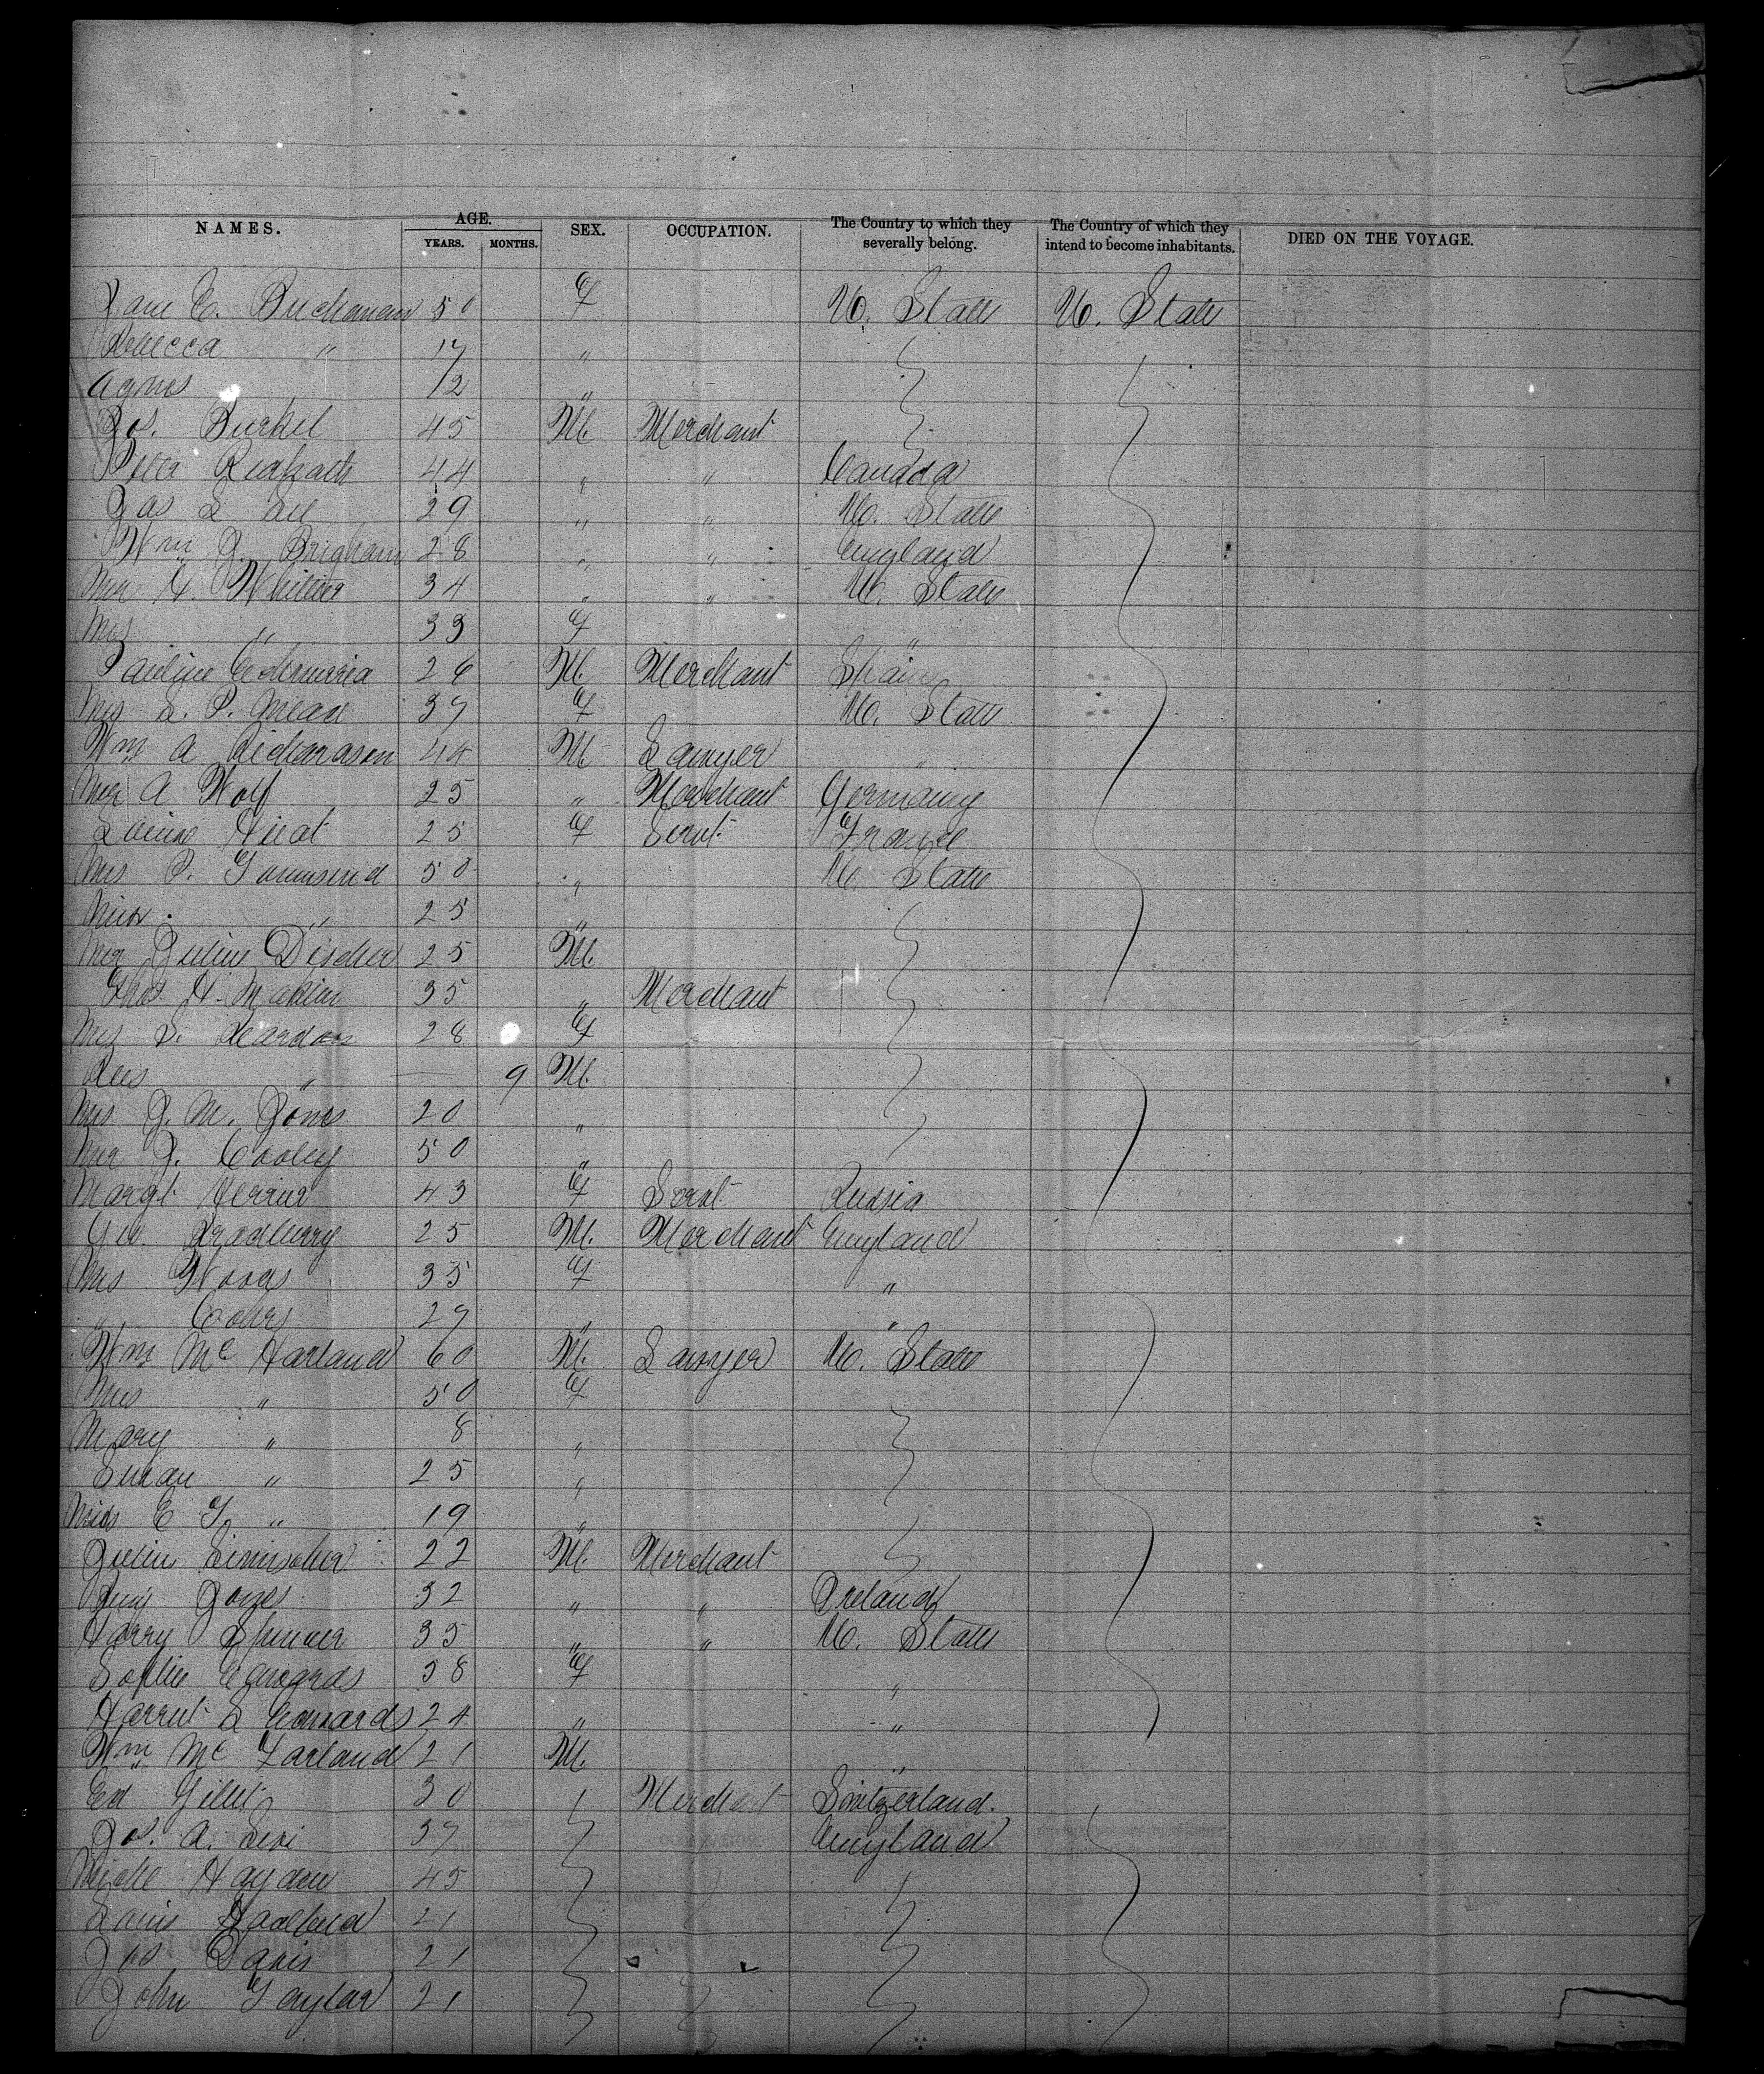 NAMES. AGE. SEX. OCCUPATION. The Country to which they severally belong. The Country of which they intend to become inhabitants. DIED ON THE VOYAGE.
YEARS. MONTHS.
Jane E. Buchanan 50 F U. States U. States
Rebecca " 17 "
Agnes 12 "
Jos. 45 M. Merchant
Peter Redpath 44 " " Canada
Jas L 29 " " U. States
Wm Brigham 28 " " England
Mr Whittier 34 " " U. States
Mrs " 33 F "
26 M. Merchant Spain
Mrs S. P. Mead 37 F U. States
Wm A Richardson 44 M Lawyer "
Mr A Wolf 25 " Merchant Germany
25 F Servt. France
Mrs P. Townsend 50 " U. States
Miss " 25 "
Mr Julius Discher 25 M.
Thos H. Makin 35 " Merchant
Mrs S. Reardon 28 F
Rees " 9 M.
Mrs J. M. Jones 20 "
Mr J. Cooley 50 "
Margt. 43 F Servt Russia
Geo. Bradburry 25 M. Merchant England
Mrs Woods 35 F "
" 27 " "
Wm Mc Harland 60 M. Lawyer U. States
Mrs " 50 F
Mary " 8 "
Susan " 25 "
Miss E " 19 "
Julius 22 M. Merchant
32 " " Ireland
Harry Spencer 35 " " U. States
Sophie Edwards 58 F "
Harriet S Edwards 24 " "
Wm Mc Farland 21 M. "
Ed 30 Merchant Switzerland.
Jos. A. Levi 37 England
Hayden 45
Louis 21
Jos Davis 21
John Taylor 21